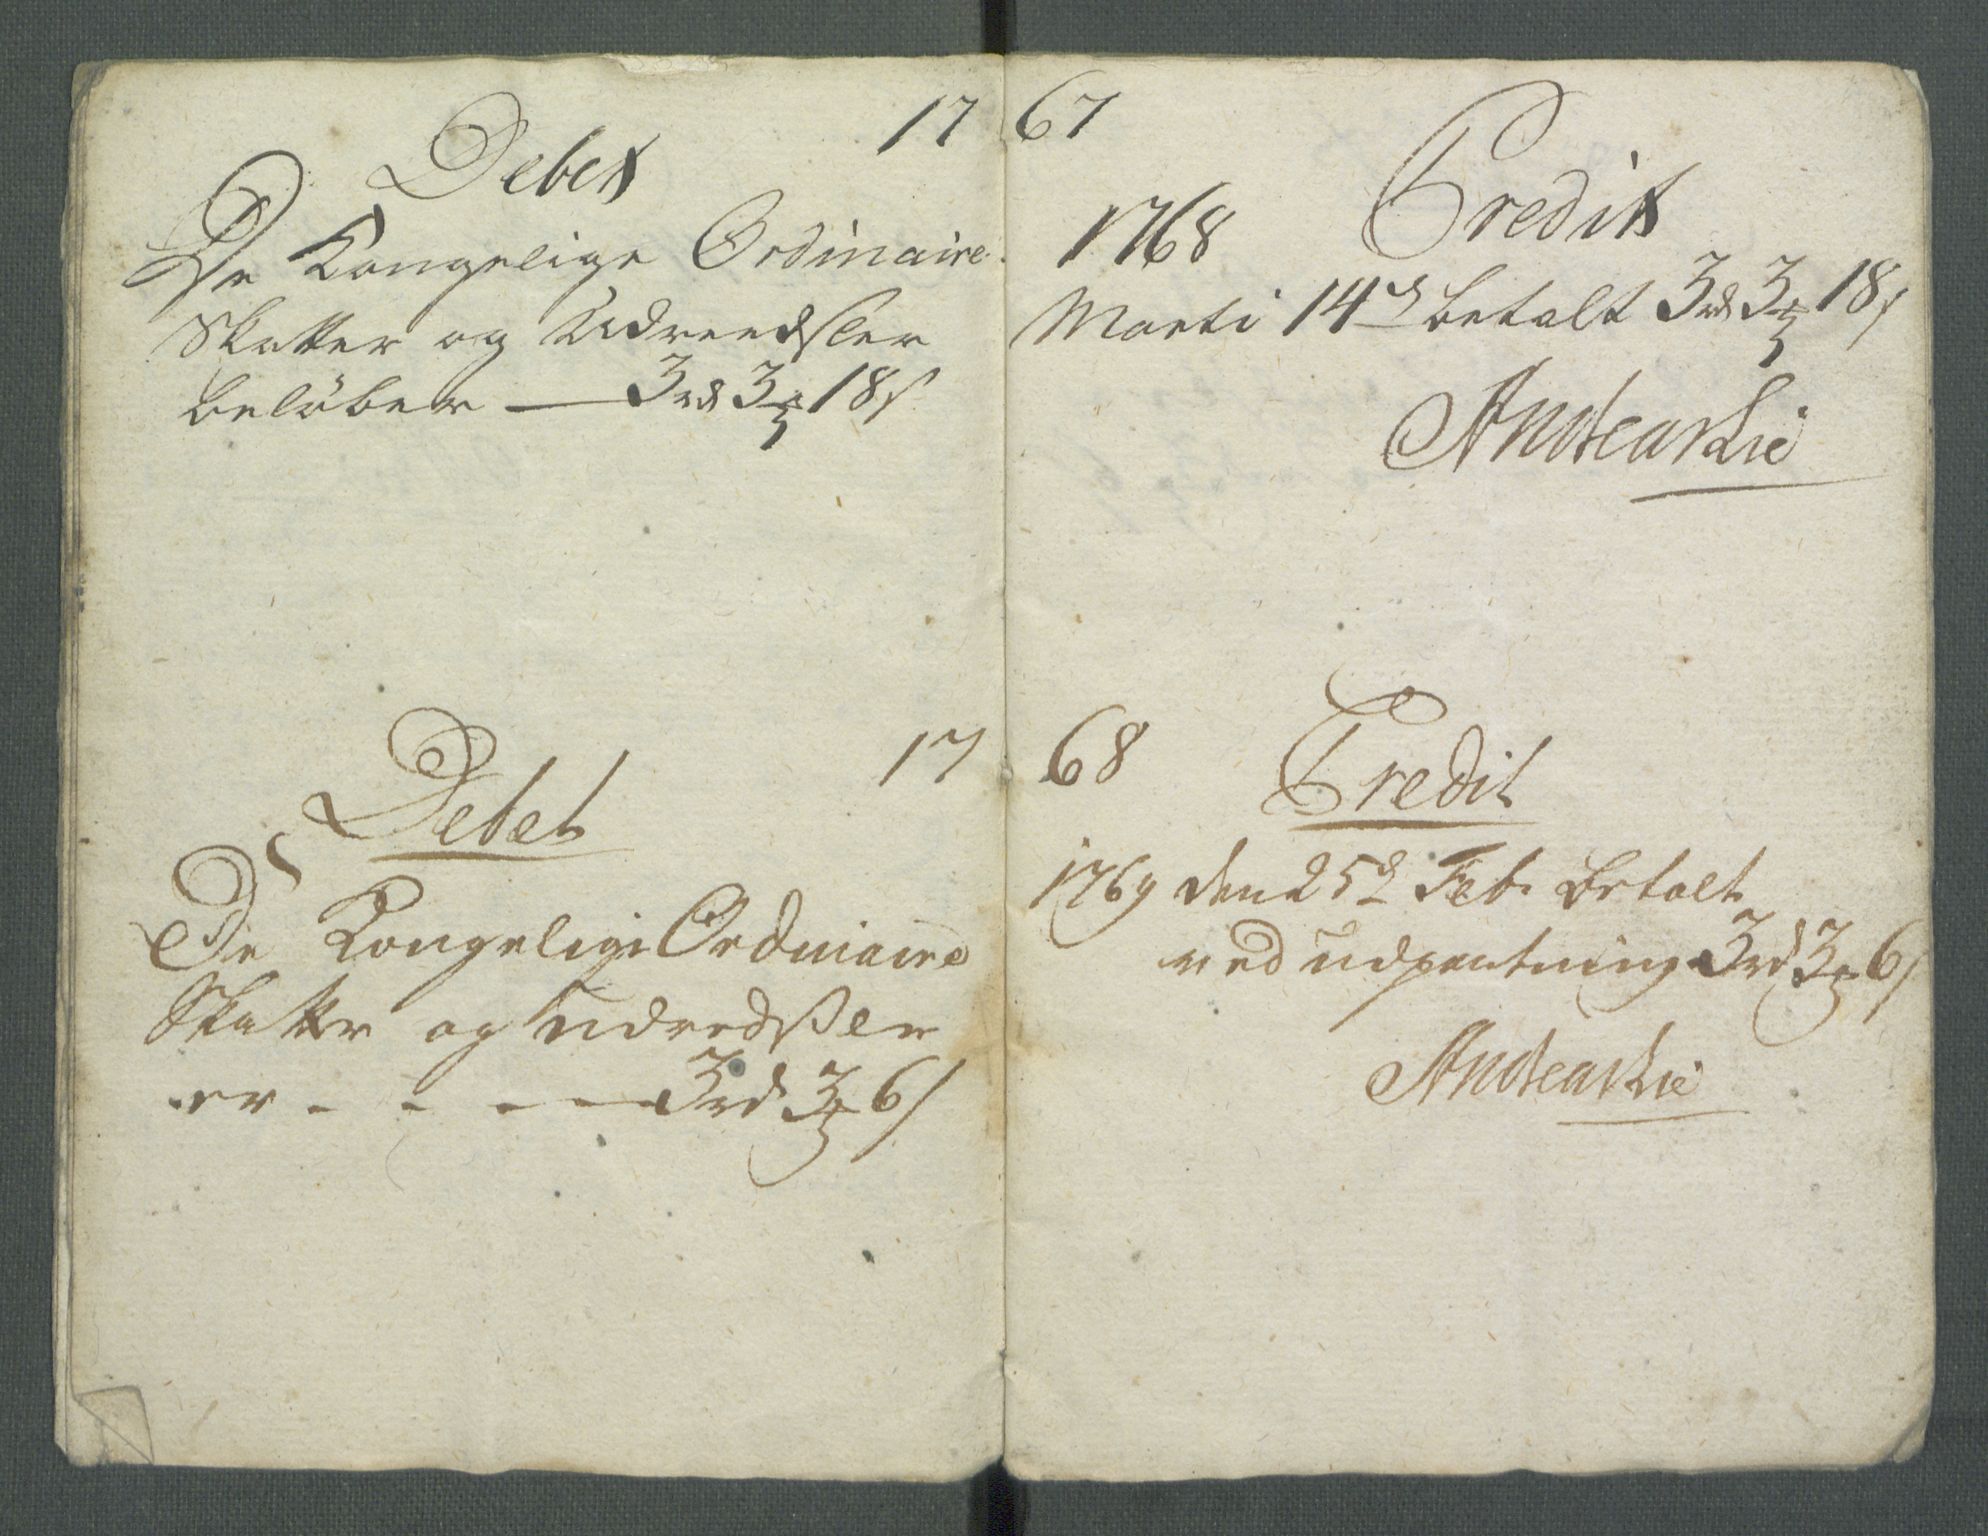 1767
Debet
De Kongelige Ordinaire
Skatter og Udreedsler
beløber — 3 rd 3 ꝣ 18 s
Credit
1768
Marti 14de betalt 3 rd 3 ꝣ 18 s
Andreas Lie
1768
Debet
De Kongelige Ordinaire
Skatter og udredsler
er - - - — 3 rd 3 ꝣ 6 s
Credit
1769 den 25de Feb. betalt
ved udpantning 3 rd 3 ꝣ 6 s
Andreas Lie